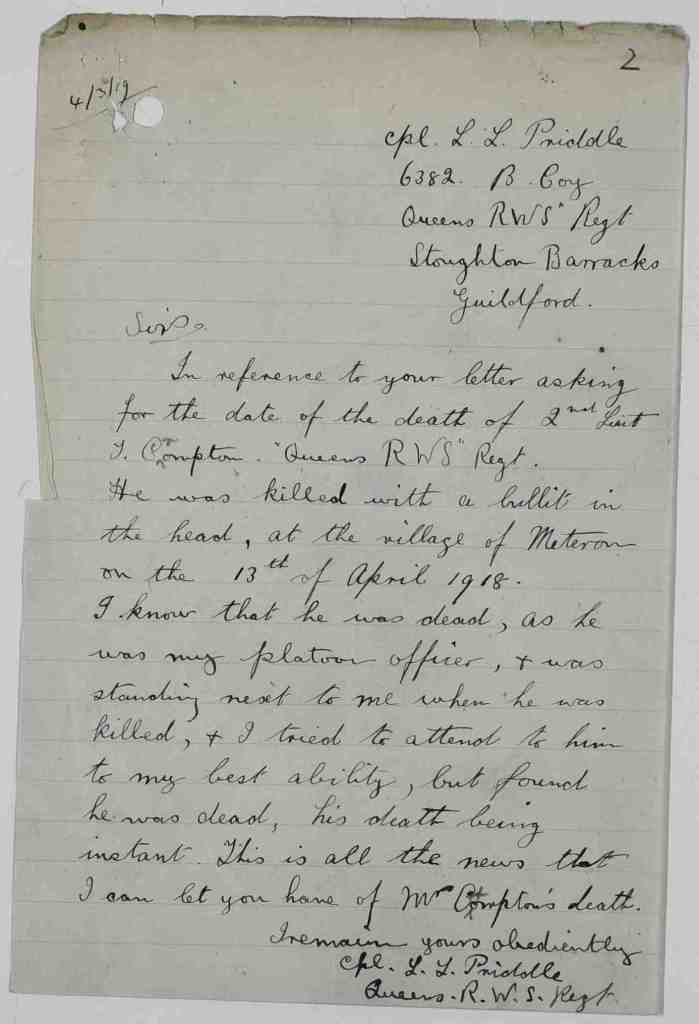 2
4/3/19
Cpl. L. L. Priddle
6382. B. Coy
Queens RWS" Regt
Stoughton Barracks
Guildford.
Sirs.
In reference to your letter asking
for the date of the death of 2nd Lieut
T. Compton. "Queens RWS" Regt.
He was killed with a bullit in
the head, at the village of Meteron
on the 13th of April 1918.
I know that he was dead, as he
was my platoon officer, & was
standing next to me when he was
killed, & I tried to attend to him
to my best ability, but found
he was dead, his death being
instant. This is all the news that
I can let you have of Mr Compton's death.
I remain yours obediently
Cpl. L. L. Priddle
Queens. R. W. S. Regt.